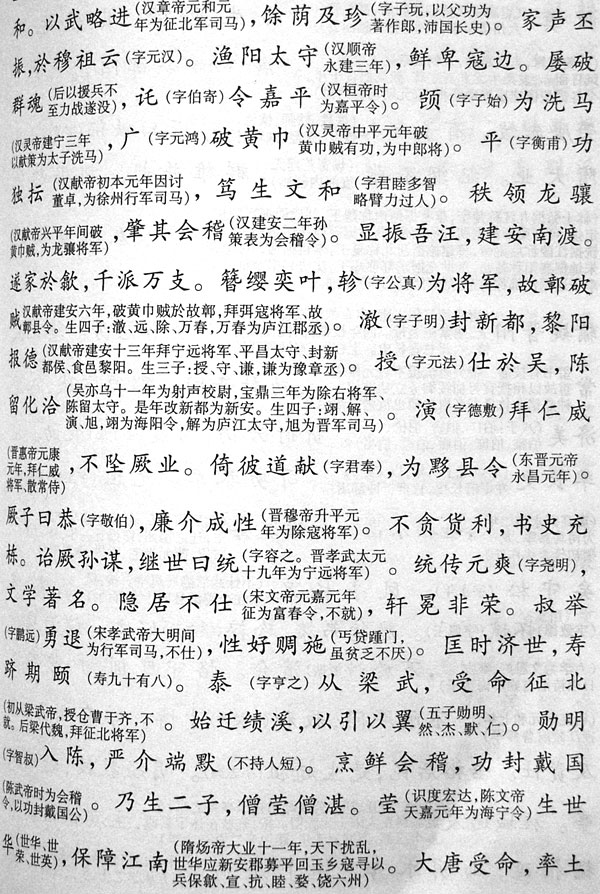 和。以武略进(汉章帝元和元年为征北军司马),馀荫及珍(字子玩,以父功为著作郎,沛国长史)。家声丕
振,於穆祖云(字元汉)。渔阳太守(汉顺帝永建三年),鲜卑寇边。屡破
群魂(后以援兵不至力战遂没),讬(字伯寄)令嘉平(汉桓帝时为嘉平令)。颁(字子始)为洗马
(汉灵帝建宁三年以献策为太子洗马),广(字元鸿)破黄巾(汉灵帝中平元年破黄巾贼有功,为中郎将)。平(字衡甫)功
独抎(汉献帝初本元年因讨董卓,为徐州行军司马),笃生文和(字君睦多智略臂力过人)。秩领龙骧
(汉献帝兴平年间破黄巾贼,为龙骧将军),肇其会稽(汉建安二年孙策表为会稽令)。显振吾汪,建安南渡。
遂家於歙,千派万支。簪缨奕叶,轸(字公真)为将军,故鄣破
贼(汉献帝建安六年,破黄巾贼於故鄣,拜弭寇将军、故鄣县令。生四子:澈、远、除、万春,万春为庐江郡丞)。澈(字子明)封新都,黎阳
报德(汉献帝建安十三年拜宁远将军、平昌太守、封新都侯、食邑黎阳。生三子:授、守、谦,谦为豫章丞)。授(字元法)仕於吴,陈
留化洽(吴亦乌十一年为射声校尉,宝鼎三年为除右将军、陈留太守。是年改新都为新安。生四子:翊、解、演、旭,翊为海阳令,解为庐江太守,旭为晋军司马)。演(字德敷)拜仁威
(晋惠帝元康元年,拜仁威将军、散常侍),不坠厥业。倚彼道献(字君奉),为黟县令(东晋元帝永昌元年)。
厥子日恭(字敬伯),廉介成性(晋穆帝升平元年为除寇将军)。不贪货利,书史充
栋。诒厥孙谋,继世曰统(字容之。晋孝武太元十九年为宁远将军)。统传元爽(字尧明),
文学著名。隐居不仕(宋文帝元嘉元年征为富春令,不就),轩冕非荣。叔举
(字鹏远)勇退(宋孝武帝大明间为行军司马,不仕),性好赒施(丐贷踵门,虽贫乏不厌)。匡时济世,寿
跻期颐(寿九十有八)。泰(字亨之)从梁武,受命征北
(初从梁武帝,授仓曹于齐,不就。后梁代魏,拜征北将军)。始迁绩溪,以引以翼(五子勋明、然、杰、默、仁)。勋明
(字智叔)入陈,严介端默(不持人短)。烹鲜会稽,功封戴国
(陈武帝时为会稽令,以功封戴国公)。乃生二子,僧莹僧湛。莹(识度宏达,陈文帝天嘉元年为海宁令)生世
华(世华、世荣、世英),保障江南(隋炀帝大业十一年,天下扰乱,世华应新安郡募平回玉乡寇寻以兵保歙、宣、抗、睦、婺、饶六州)。大唐受命,率土